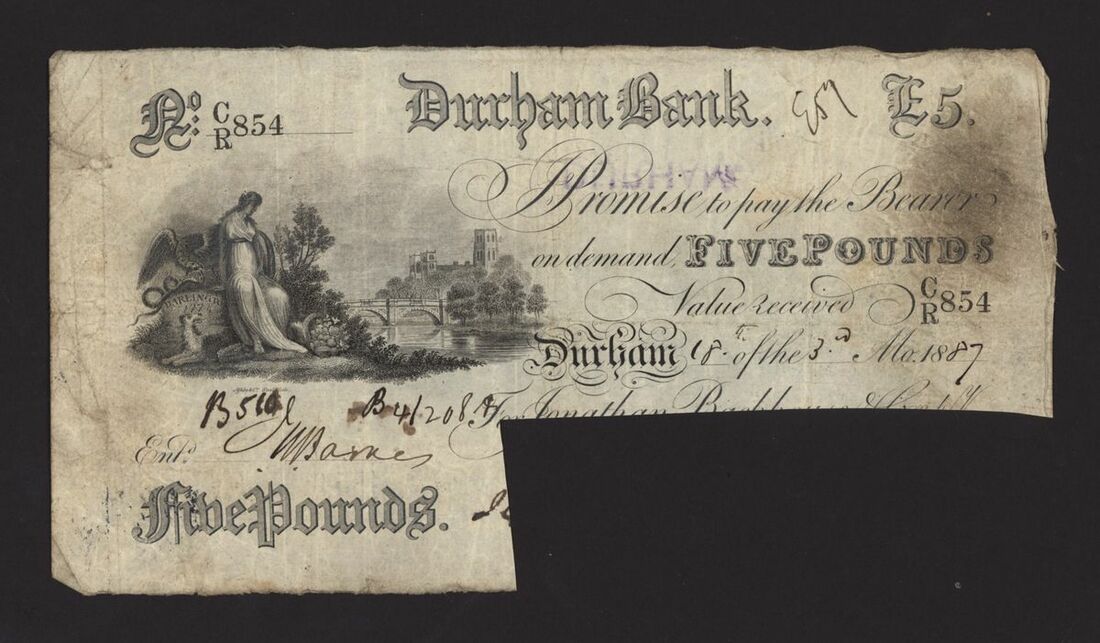 No: C/R 854
Durham Bank.
£5.
I Promise to pay the Bearer
on demand, FIVE POUNDS
Value received C/R 854
Durham 18th of the 3d Mo. 1887
DARLINGTON
B4/208
For Jonathan Backhouse & Compy
Entd WBarnes
Five Pounds.